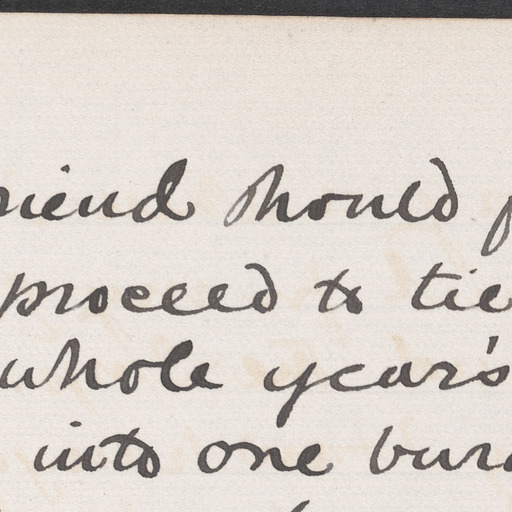 riend should
proceed to tie
whole year's
into one bur